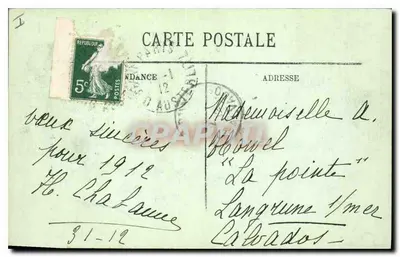 I
CARTE POSTALE
RÉPUBLIQUE FRANÇAISE
5c
POSTES
PARIS
12
R. D'AUST
NDANCE
ADRESSE
vœux sincères
pour 1912
H. Chabanne
31-12
Mademoiselle A.
Howel
"La pointe"
Langrune s/mer
Calvados